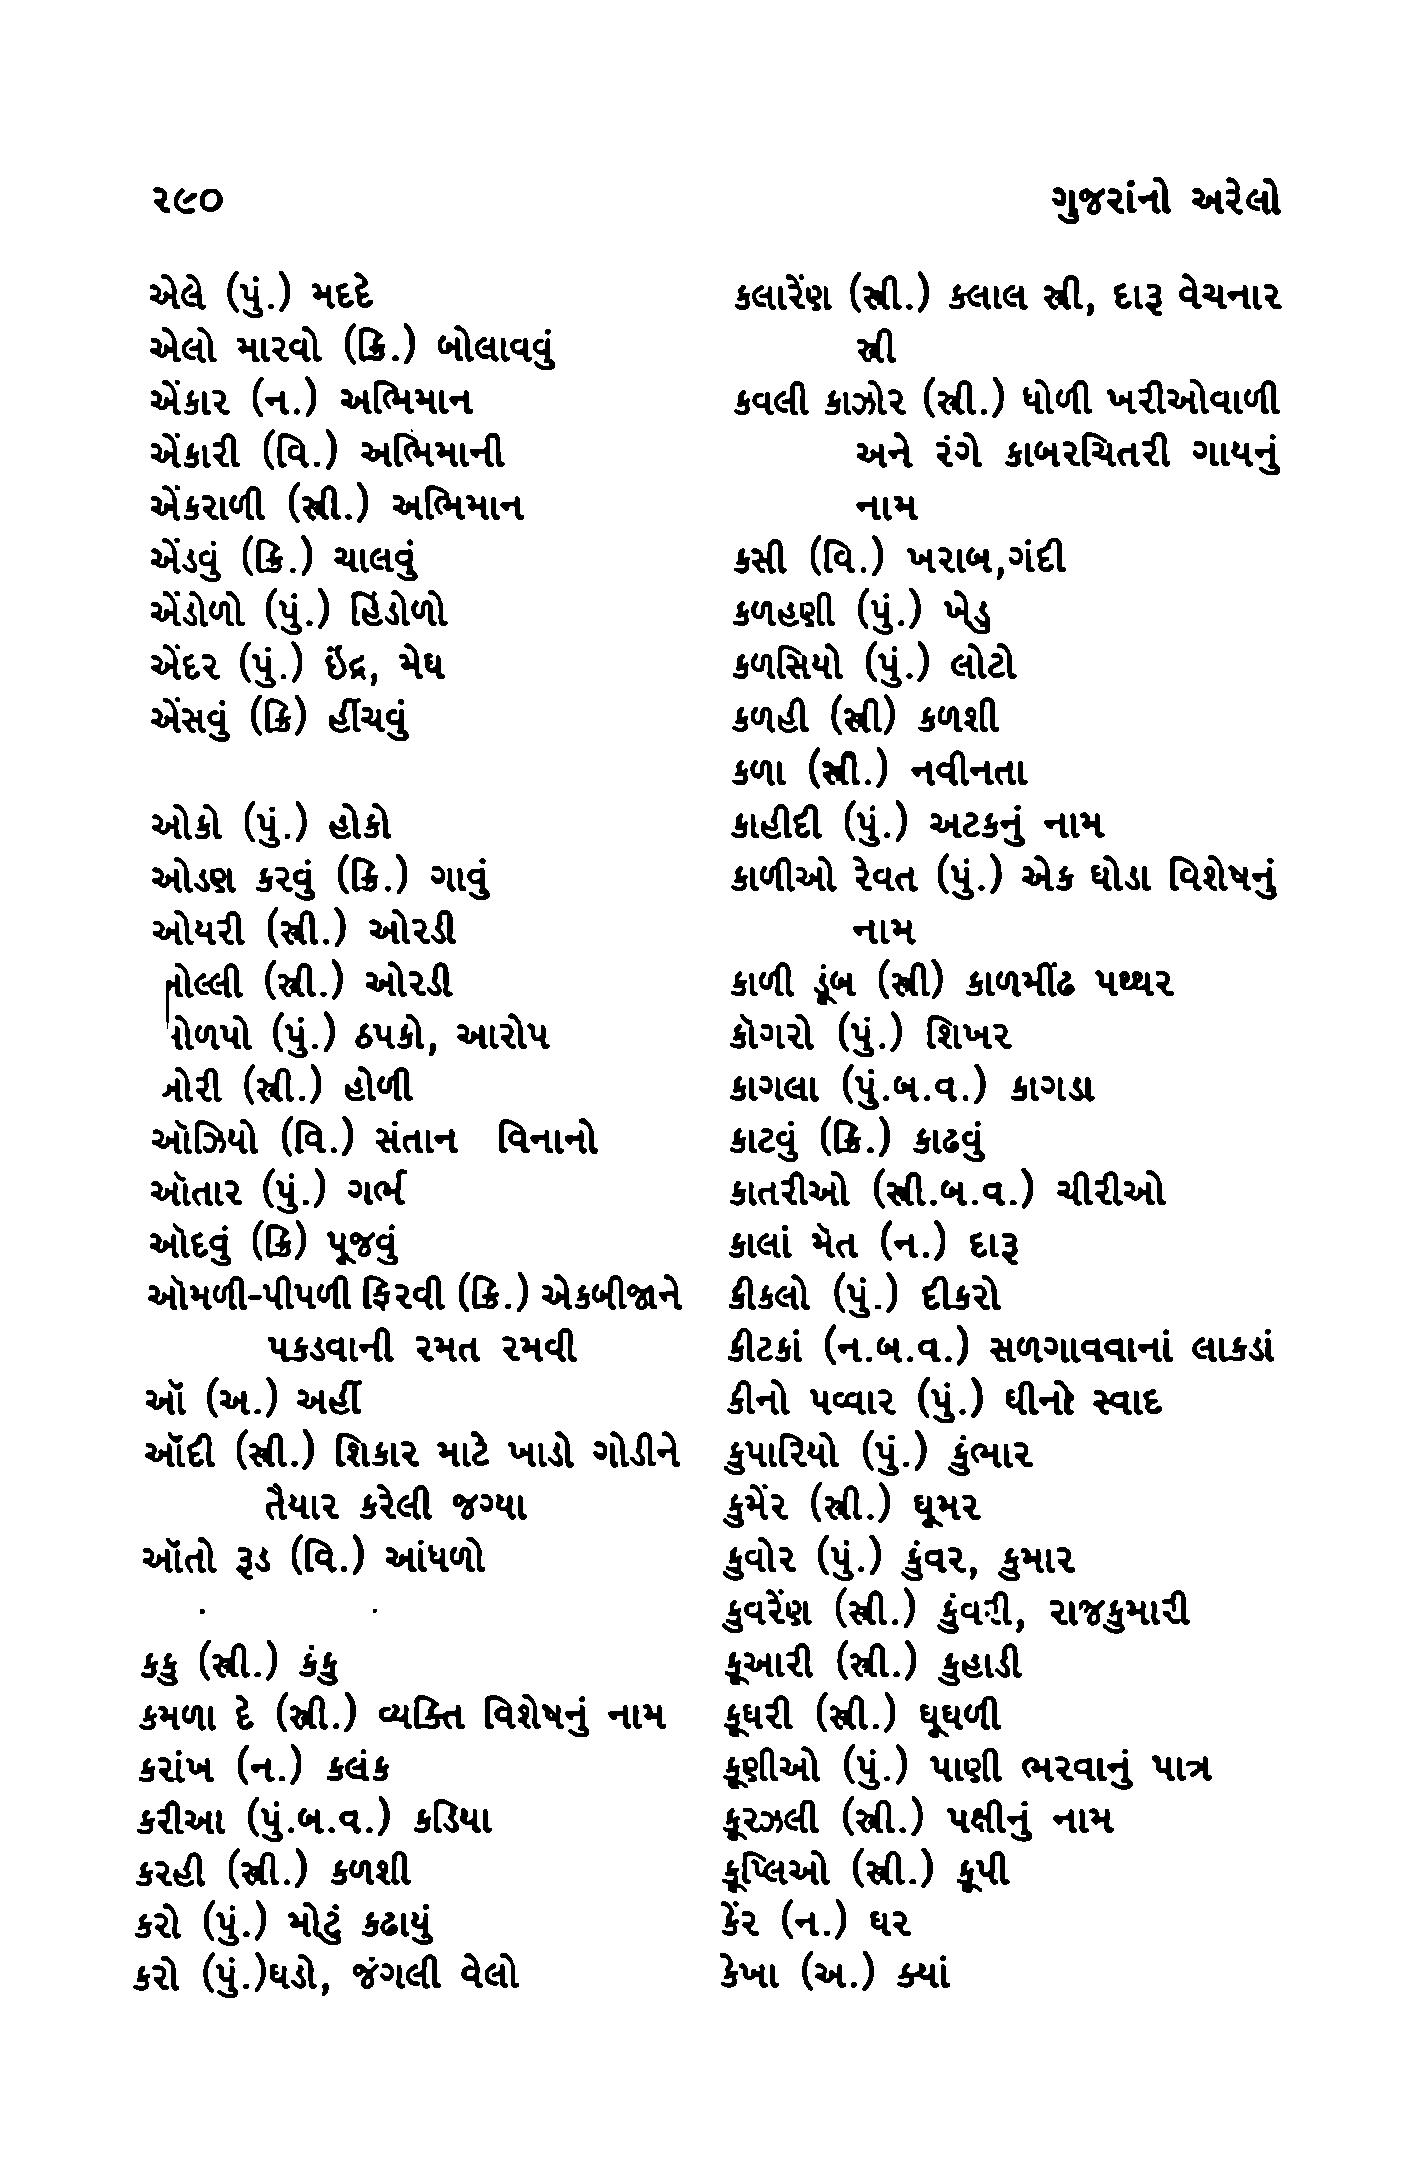 ૨૯૦
ગુજરાંનો અરેલો
એલે (પું.) મદદે
એલો મારવો (ક્રિ.) બોલાવવું
એંકાર (ન.) અભિમાન
એંકારી (વિ.) અભિમાની
એંકરાળી (સ્ત્રી.) અભિમાન
એંડવું (ક્રિ.) ચાલવું
એંડોળો (પું.) હિંડોળો
એંદર (પું.) ઇંદ્ર, મેઘ
એંસવું (ક્રિ) હીંચવું
ઓકો (પું.) હોકો
ઓડણ કરવું (ક્રિ.) ગાવું
ઓયરી (સ્ત્રી.) ઓરડી
ઓલ્લી (સ્ત્રી.) ઓરડી
ઓળપો (પું.) ઠપકો, આરોપ
ઓરી (સ્ત્રી.) હોળી
ઑઝિયો (વિ.) સંતાન વિનાનો
ઑતાર (પું.) ગર્ભ
ઑદવું (ક્રિ) પૂજવું
ઑમળી-પીપળી ફિરવી (ક્રિ.) એકબીજાને
પકડવાની રમત રમવી
ઑં (અ.) અહીં
ઑંદી (સ્ત્રી.) શિકાર માટે ખાડો ગોડીને
તૈયાર કરેલી જગ્યા
ઑંતો રૂડ (વિ.) આંધળો
કકુ (સ્ત્રી.) કંકુ
કમળા દે (સ્ત્રી.) વ્યક્તિ વિશેષનું નામ
કરાંખ (ન.) કલંક
કરીઆ (પું.બ.વ.) કડિયા
કરહી (સ્ત્રી.) કળશી
કરો (પું.) મોટું કઢાયું
કરો (પું.)ઘડો, જંગલી વેલો
કલારેંણ (સ્ત્રી.) ક્લાલ સ્ત્રી, દારૂ વેચનાર
સ્ત્રી
કવલી કાઝોર (સ્ત્રી.) ધોળી ખરીઓવાળી
અને રંગે કાબરચિતરી ગાયનું
નામ
કસી (વિ.) ખરાબ,ગંદી
કળહણી (પું.) ખેડુ
કળસિયો (પું.) લોટો
કળહી (સ્ત્રી) કળશી
કળા (સ્ત્રી.) નવીનતા
કાહીદી (પું.) અટકનું નામ
કાળીઓ રેવત (પું.) એક ઘોડા વિશેષનું
નામ
કાળી ડૂંબ (સ્ત્રી) કાળમીંઢ પથ્થર
કૉગરો (પું.) શિખર
કાગલા (પું.બ.વ.) કાગડા
કાટવું (ક્રિ.) કાઢવું
કાતરીઓ (સ્ત્રી.બ.વ.) ચીરીઓ
કાલાં મૅત (ન.) દારૂ
કીકલો (પું.) દીકરો
કીટકાં (ન.બ.વ.) સળગાવવાનાં લાકડાં
કીનો પવ્વાર (પું.) ઘીનો સ્વાદ
કુપારિયો (પું.) કુંભાર
કુમેંર (સ્ત્રી.) ઘૂમર
કુવોર (પું.) કુંવર, કુમાર
કુવરેંણ (સ્ત્રી.) કુંવરી, રાજકુમારી
કૂઆરી (સ્ત્રી.) કુહાડી
કૂઘરી (સ્ત્રી.) ઘૂઘળી
કૂણીઓ (પું.) પાણી ભરવાનું પાત્ર
કૂરઝલી (સ્ત્રી.) પક્ષીનું નામ
કૂપ્લિઓ (સ્ત્રી.) કૂપી
કેંર (ન.) ઘર
કેખા (અ.) ક્યાં